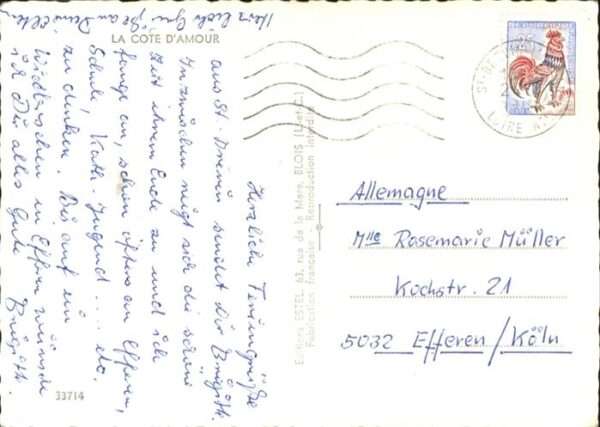 LA COTE D'AMOUR
Herzliche Feriengrüße
aus St. Brévin sendet dir Brigitte.
Inzwischen neigt sich die schöne
Zeit ihrem Ende zu und ich
fange an, schon öfters an Efferen,
Schule, Kath. Jugend.... etc.
zu denken. Bis auf ein
Wiedersehen in Efferen wünsche
ich Dir alles Gute
Brigitte.
Herzliche
33714
Editions ESTEL, 63, rue de la Mare, BLOIS (L.-et-C.)
Fabrication française - Reproduction interdite
LOIRE
Allemagne
Mlle Rosemarie Müller
Kochstr. 21
5032 Efferen/Köln